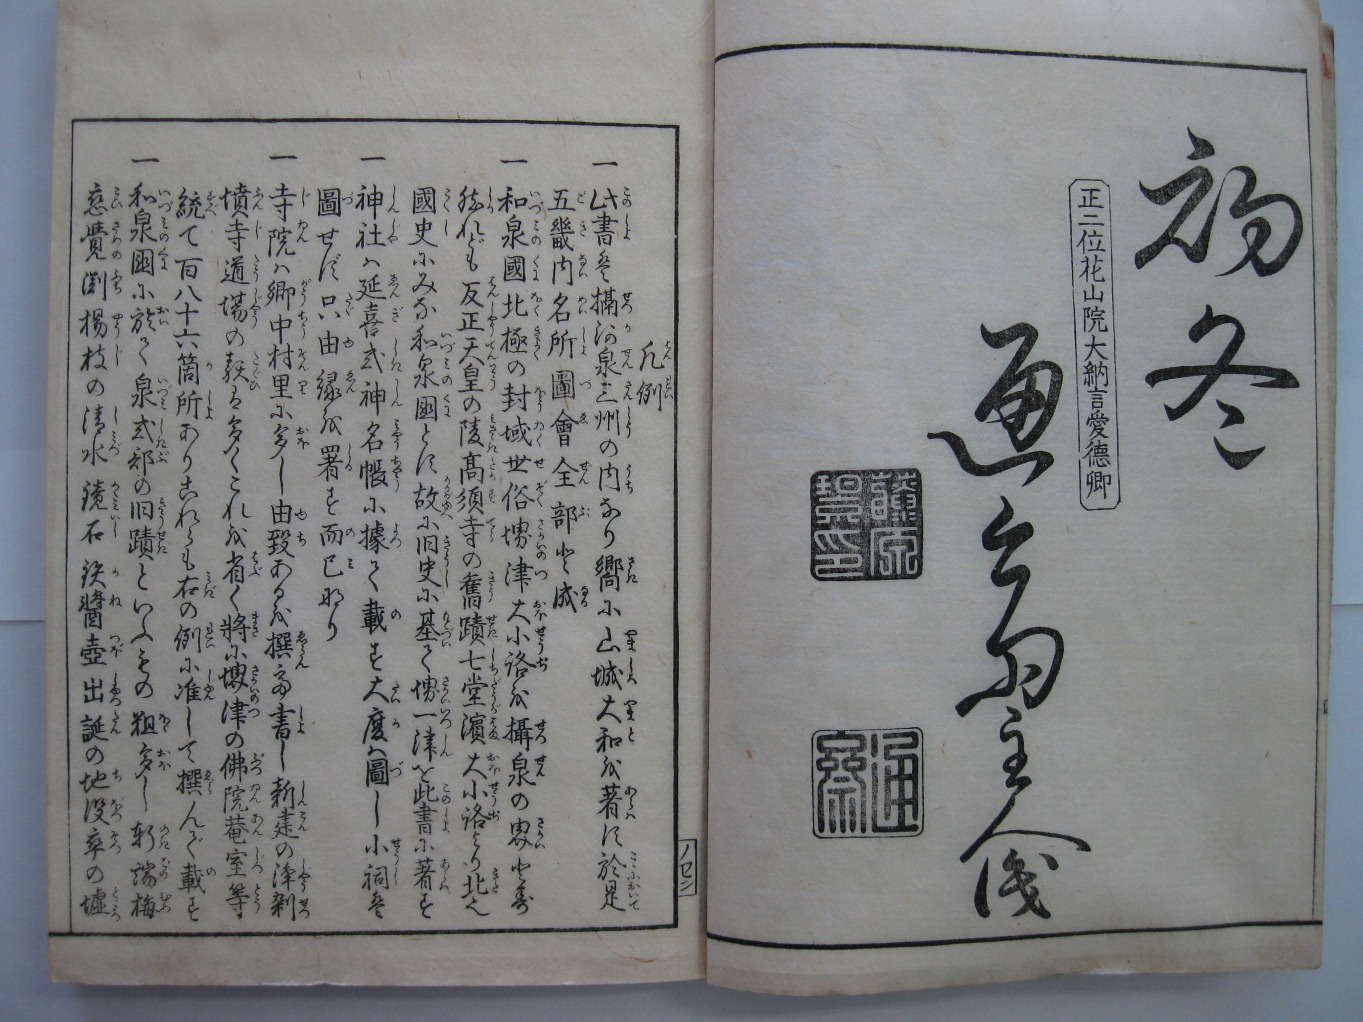 初冬
正二位花山院大納言愛德卿
通
主人
藤原
凡例
一 此書は攝河泉三州の内なり嚮に山城大和を著す於是
五畿内名所圖會全部と成
一 和泉國北極の封域世俗堺津大小路を攝泉の界とす
然れども反正天皇の陵髙須寺の舊蹟七堂濱大小路より北へ
國史にみな和泉國とす故に旧史に基て堺一津を此書に著す
一 神社は延喜式神名帳に據て載す大度は圖し小祠は
圖せず只由縁を署す而已なり
一 寺院は郷中村里に多し由致あるを撰る書し新建の淨刹
墳寺道場の類は多くこれを省く將に堺津の佛院菴室等
統て百八十六箇所ありこれらも右の例に准して撰んで載す
一 和泉國に於て泉式部の旧蹟といふもの粗多し軒端梅
恋覺渕楊枝の清水鏡石鉄醤壺出誕の地没卒の墟